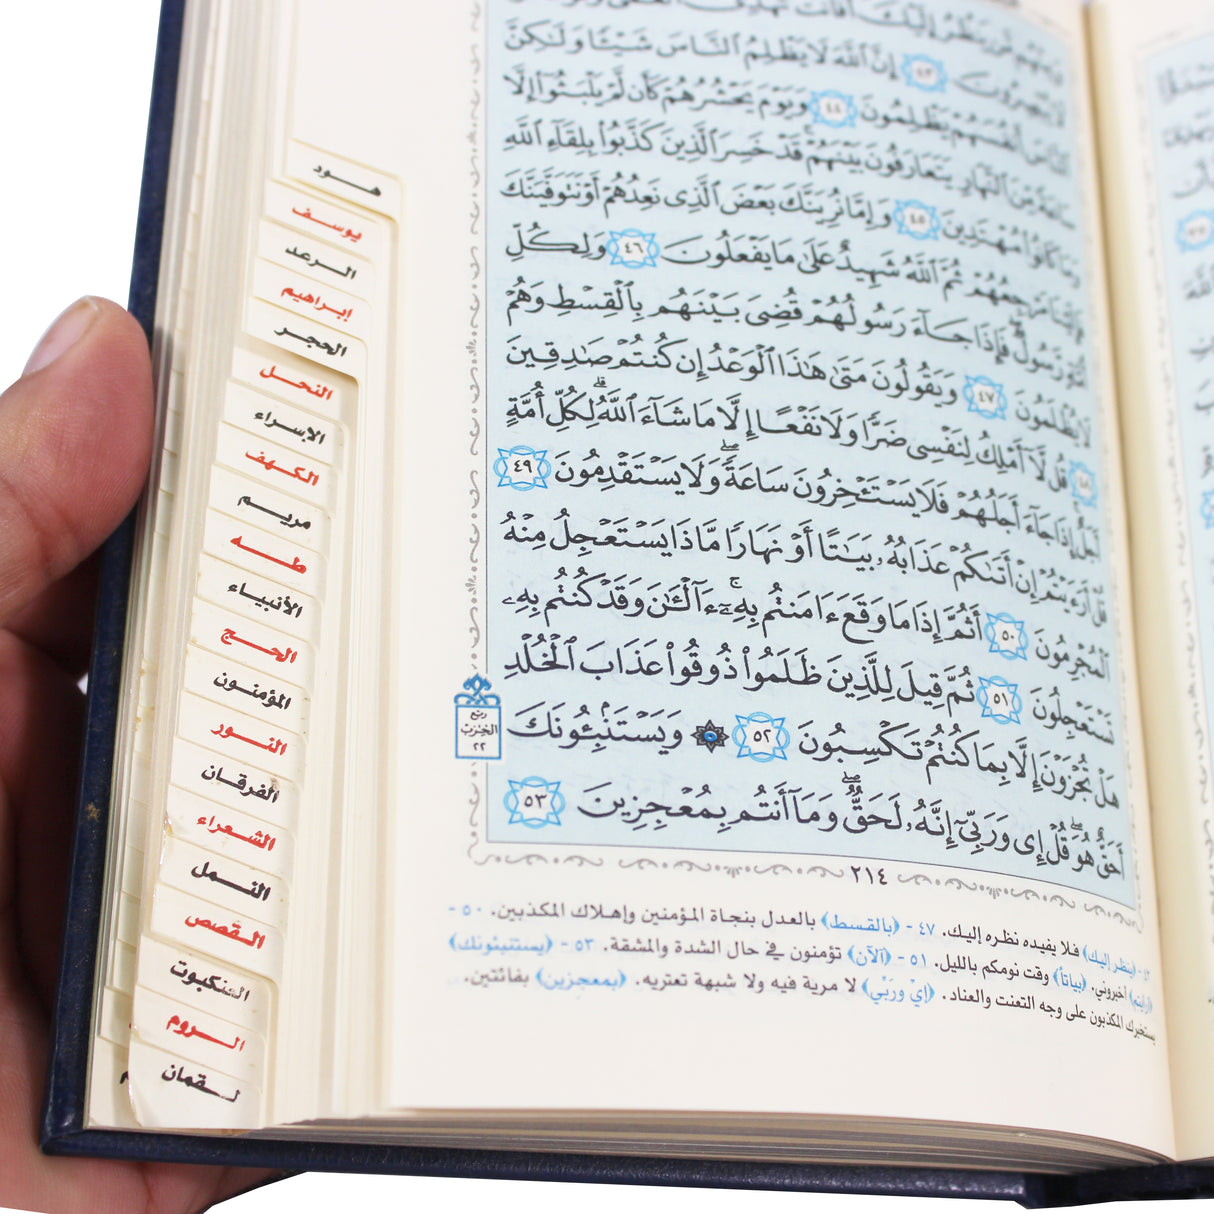 إِنَّ ٱللَّهَ لَا يَظْلِمُ ٱلنَّاسَ شَيْـًٔا وَلَـٰكِنَّ
ٱلنَّاسَ أَنفُسَهُمْ يَظْلِمُونَ ٤٤ وَيَوْمَ يَحْشُرُهُمْ كَأَن لَّمْ يَلْبَثُوٓا۟ إِلَّا
سَاعَةً مِّنَ ٱلنَّهَارِ يَتَعَارَفُونَ بَيْنَهُمْ ۚ قَدْ خَسِرَ ٱلَّذِينَ كَذَّبُوا۟ بِلِقَآءِ ٱللَّهِ
وَمَا كَانُوا۟ مُهْتَدِينَ ٤٥ وَإِمَّا نُرِيَنَّكَ بَعْضَ ٱلَّذِى نَعِدُهُمْ أَوْ نَتَوَفَّيَنَّكَ
فَإِلَيْنَا مَرْجِعُهُمْ ثُمَّ ٱللَّهُ شَهِيدٌ عَلَىٰ مَا يَفْعَلُونَ ٤٦ وَلِكُلِّ
أُمَّةٍ رَّسُولٌ ۖ فَإِذَا جَآءَ رَسُولُهُمْ قُضِىَ بَيْنَهُم بِٱلْقِسْطِ وَهُمْ
لَا يُظْلَمُونَ ٤٧ وَيَقُولُونَ مَتَىٰ هَـٰذَا ٱلْوَعْدُ إِن كُنتُمْ صَـٰدِقِينَ
٤٨ قُل لَّآ أَمْلِكُ لِنَفْسِى ضَرًّا وَلَا نَفْعًا إِلَّا مَا شَآءَ ٱللَّهُ ۗ لِكُلِّ أُمَّةٍ
أَجَلٌ ۚ إِذَا جَآءَ أَجَلُهُمْ فَلَا يَسْتَـْٔخِرُونَ سَاعَةً ۖ وَلَا يَسْتَقْدِمُونَ ٤٩
قُلْ أَرَءَيْتُمْ إِنْ أَتَىٰكُمْ عَذَابُهُۥ بَيَـٰتًا أَوْ نَهَارًا مَّاذَا يَسْتَعْجِلُ مِنْهُ
ٱلْمُجْرِمُونَ ٥٠ أَثُمَّ إِذَا مَا وَقَعَ ءَامَنتُم بِهِۦٓ ۚ ءَآلْـَٔـٰنَ وَقَدْ كُنتُم بِهِۦ
تَسْتَعْجِلُونَ ٥١ ثُمَّ قِيلَ لِلَّذِينَ ظَلَمُوا۟ ذُوقُوا۟ عَذَابَ ٱلْخُلْدِ
هَلْ تُجْزَوْنَ إِلَّا بِمَا كُنتُمْ تَكْسِبُونَ ٥٢ ۞ وَيَسْتَنۢبِـُٔونَكَ
أَحَقٌّ هُوَ ۖ قُلْ إِى وَرَبِّىٓ إِنَّهُۥ لَحَقٌّ ۖ وَمَآ أَنتُم بِمُعْجِزِينَ ٥٣
ربع
الحزب
٢٢
٢١٤
(ينظر إليك) فلا يفيده نظره إليك. ٤٧ - (بالقسط) بالعدل بنجاة المؤمنين وإهلاك المكذبين. ٥٠ -
(أرأيتم) أخبروني. (بياتاً) وقت نومكم بالليل. ٥١ - (آلآن) تؤمنون في حال الشدة والمشقة. ٥٣ - (يستنبئونك)
يستخبرك المكذبون على وجه التعنت والعناد. (إي وربي) لا مرية فيه ولا شبهة تعتريه. (بمعجزين) بفائتين.
هود
يوسف
الرعد
إبراهيم
الحجر
النحل
الاسراء
الكهف
مريم
طه
الأنبياء
الحج
المؤمنون
النور
الفرقان
الشعراء
النمل
القصص
العنكبوت
الروم
لقمان